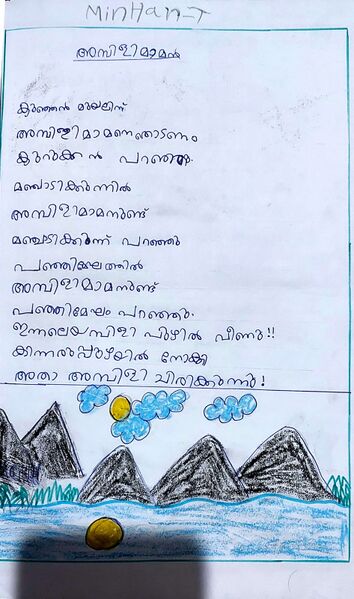 MinHan-T
അമ്പിളിമാമൻ
കുഞ്ഞൻ മുയലിന്
അമ്പിളിമാമനെതൊടണം
കുറുക്കൻ പറഞ്ഞു.
മഞ്ചാടിക്കുന്നിൽ
അമ്പിളിമാമനുണ്ട്
മഞ്ചാടിക്കുന്ന് പറഞ്ഞു
പഞ്ഞിമേഘത്തിൽ
അമ്പിളിമാമനുണ്ട്
പഞ്ഞിമേഘം പറഞ്ഞു.
ഇന്നലെയമ്പിളി പുഴിൽ വീണു!!
കിന്നരിപ്പുഴയിൽ നോക്കി
അതാ അമ്പിളി ചിരിക്കുന്നു!